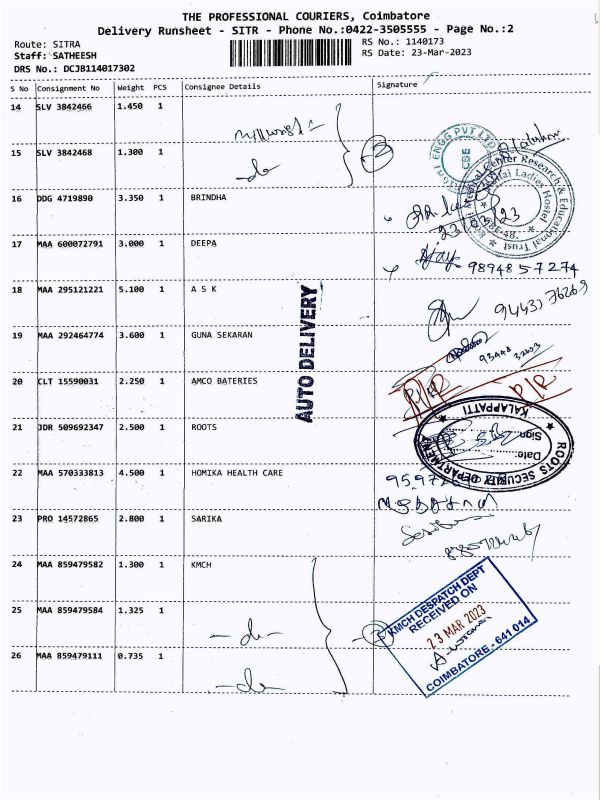 THE PROFESSIONAL COURIERS, Coimbatore
Delivery Runsheet - SITR - Phone No.:0422-3505555 - Page No.:2
Route: SITRA
RS No.: 1140173
Staff: SATHEESH
RS Date: 23-Mar-2023
DRS No.: DCJ8114017302
S No Consignment No Weight PCS Consignee Details Signature
14 SLV 3842466 1.450 1
15 SLV 3842468 1.300 1
-do-
2
ENGG PVT LTD
CBE
16 DDG 4719890 3.350 1 BRINDHA
Medical Center Research & Educational Trust
Ladies Hostel
23/03/23
17 MAA 600072791 3.000 1 DEEPA
Ajay 98948 57274
18 MAA 295121221 5.100 1 A S K
94433 76269
AUTO DELIVERY
19 MAA 292464774 3.600 1 GUNA SEKARAN
20 CLT 15590031 2.250 1 AMCO BATERIES
P/R P/R
21 JDR 509692347 2.500 1 ROOTS
ROOTS SECURITY DEPARTMENT
KALAPPATTI
Sign:
Date:
22 MAA 570333813 4.500 1 HOMIKA HEALTH CARE
23 PRO 14572865 2.800 1 SARIKA
24 MAA 859479582 1.300 1 KMCH
25 MAA 859479584 1.325 1
-do-
3
KMCH DESPATCH DEPT
RECEIVED ON
23 MAR 2023
COIMBATORE - 641 014
26 MAA 859479111 0.735 1
-do-